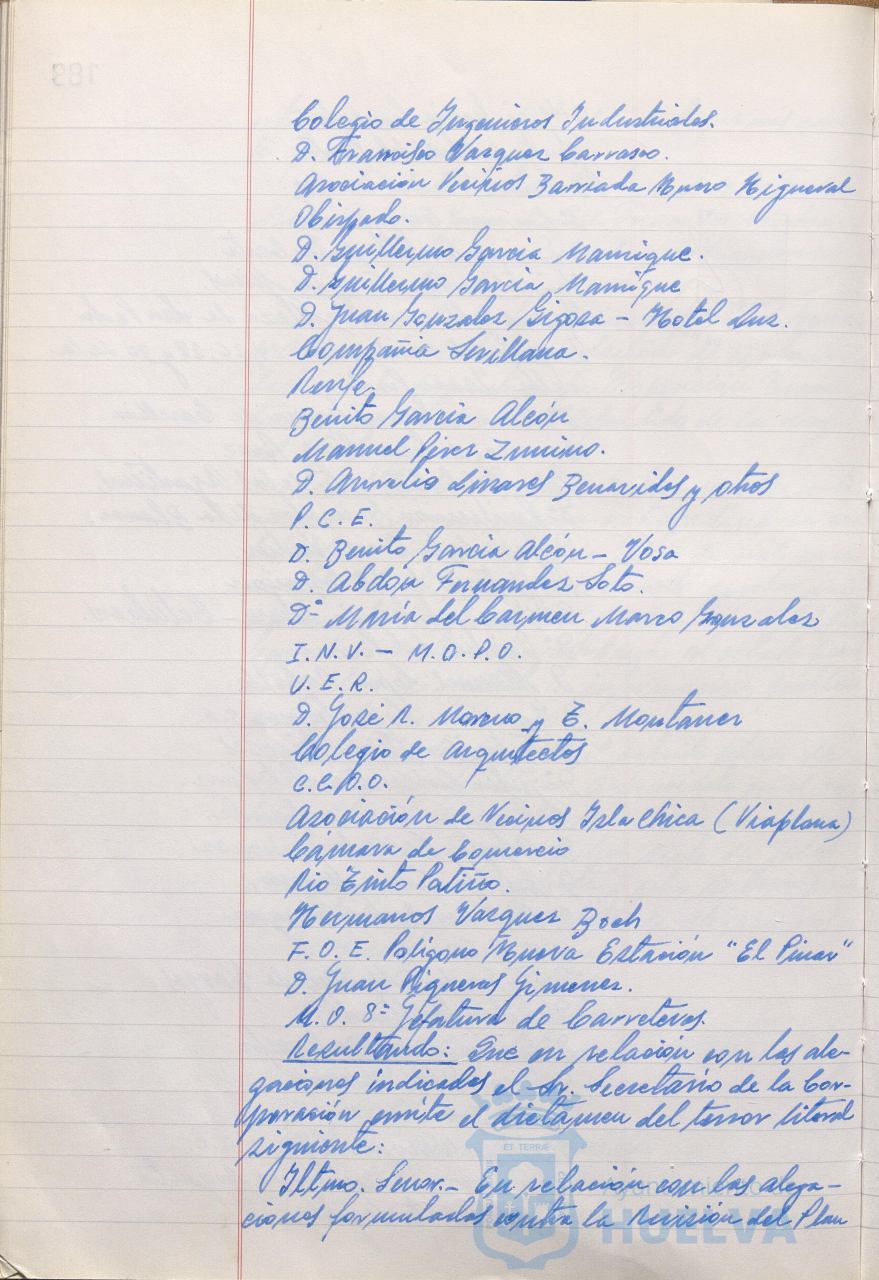 Colegio de Ingenieros Industriales.
D. Francisco Vazquez Carrasco.
Asociación Vecinos Barriada Higueral
Obispado.
D. Guillermo Garcia Manrique.
D. Guillermo Garcia Manrique
D. Juan Gonzalez Gigosa - Hotel Luz.
Compañia Sevillana.
Renfe.
Benito Garcia Alcón
Manuel Pérez Zunino.
D. Aurelio Linares Benavides y otros
P.C.E.
D. Benito Garcia Alcón - Vosa
D. Abdon Fernandez Soto.
Dª María del Carmen Marco Gonzalez
I.N.V. - M.O.P.U.
U.E.R.
D. José R. Moreno y E. Montaner
Colegio de arquitectos
C.C.O.O.
Asociación de Vecinos Isla Chica (Viaplana)
Cámara de Comercio
Rio Tinto Patiño.
Hermanos Vazquez Boch
F.O.E. Polígono Nueva Estación "El Pinar"
D. Juan Pigueras Gimenez.
M.O. 8ª Jefatura de Carreteras.
Resultando: Que en relación con las ale-
gaciones indicadas el Sr. Secretario de la Cor-
poración emite el dictámen del tenor literal
siguiente:
Iltmo. Senor.- En relación con las alega-
ciones formuladas contra la Revisión del Plan
ET TERRÆ
HUELVA